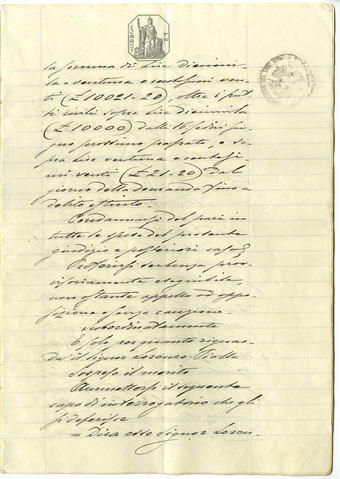 la somma di Lire diecimi-
la e ventuna e centesimi ven-
ti (£10021.20), oltre i frut
ti civili sopra Lire diecimila
(£10000) dalli 16 
gno prossimo passato, e so-
pra Lire ventuna e centesi-
mi venti (£21.20) dal
giorno della domanda fino a
debito estinto.
Condannarsi del pari in
tutte le spese del presente
giudizio e posteriori
Proferirsi sentenza prov-
visoriamente eseguibile,
non ostante appello od oppo-
sizione e senza cauzione.
Subordinatamente
E solo per quanto riguar-
da il signor Lorenzo
Sospeso il merito
Ammettersi il seguente
capo d'interrogatorio che gli
si deferisce
= Dica esso Signor Loren-